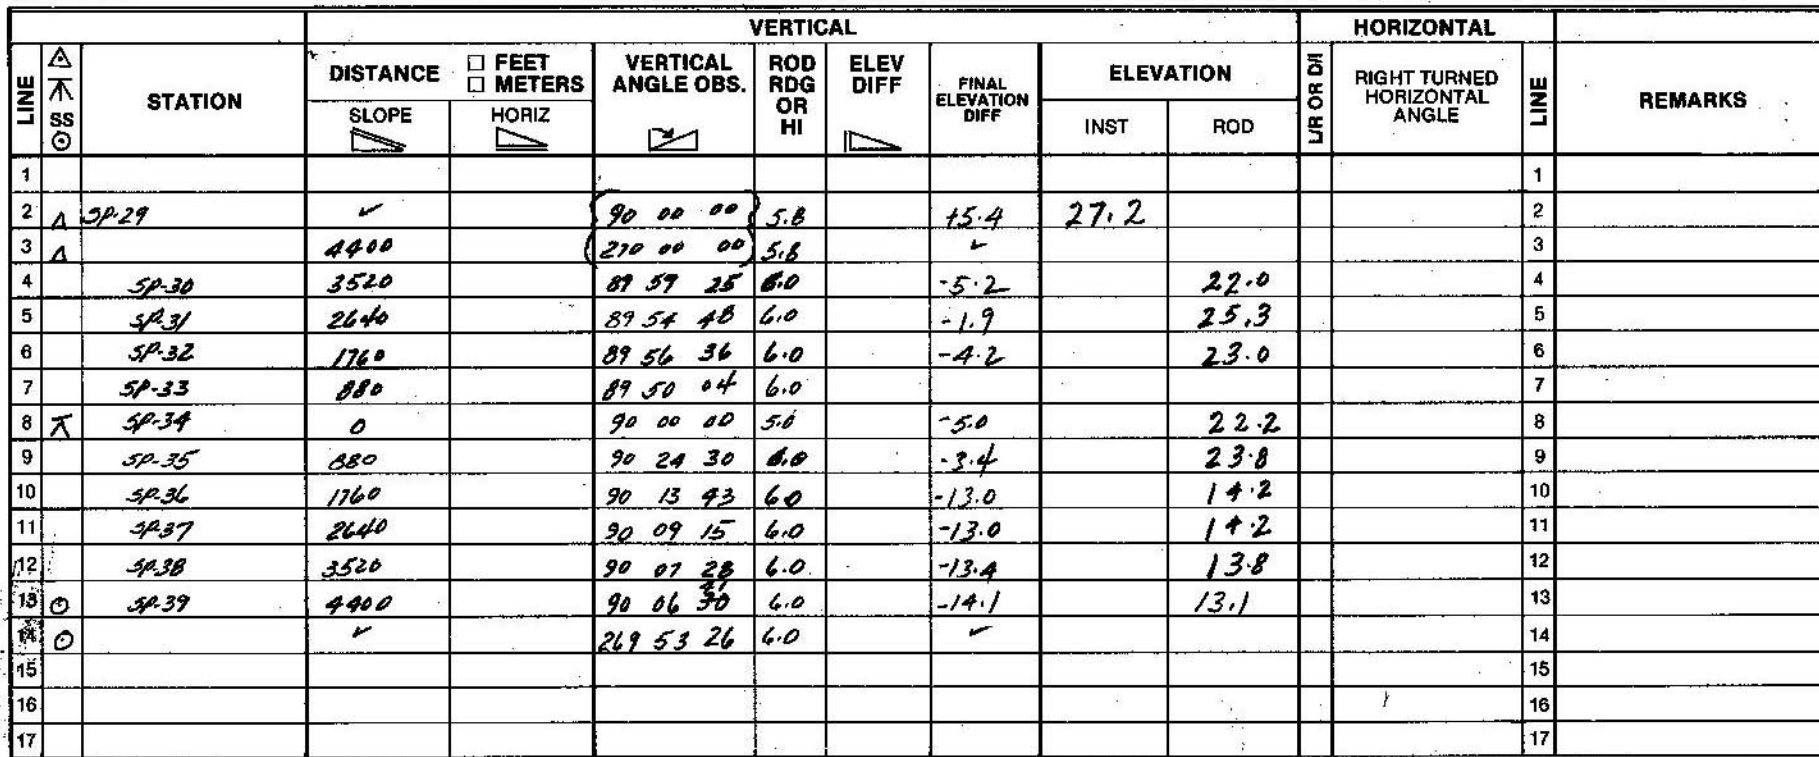 VERTICAL HORIZONTAL
LINE SS STATION DISTANCE FEET METERS VERTICAL ANGLE OBS. ROD RDG OR HI ELEV DIFF FINAL ELEVATION DIFF ELEVATION L/R OR D/I RIGHT TURNED HORIZONTAL ANGLE LINE REMARKS
SLOPE HORIZ INST ROD
1 1
2 △ SP-29 ✓ 90 00 00 5.8 +5.4 27.2 2
3 △ 4400 270 00 00 5.8 ✓ 3
4 SP-30 3520 89 59 25 6.0 -5.2 22.0 4
5 SP-31 2640 89 54 48 6.0 -1.9 25.3 5
6 SP-32 1760 89 56 36 6.0 -4.2 23.0 6
7 SP-33 880 89 50 04 6.0 7
8 SP-34 0 90 00 00 5.0 -5.0 22.2 8
9 SP-35 880 90 24 30 -3.4 23.8 9
10 SP-36 1760 90 13 43 6.0 -13.0 14.2 10
11 SP-37 2640 90 09 15 6.0 -13.0 14.2 11
12 SP-38 3520 90 07 28 6.0 -13.4 13.8 12
13 ⊙ SP-39 4400 90 06 6.0 -14.1 13.1 13
14 ⊙ ✓ 269 53 26 6.0 ✓ 14
15 15
16 16
17 17